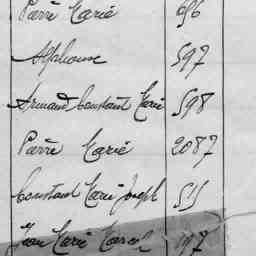 Pierre Marie 696
Alphonse 597
Armand Constant Marie 598
Pierre Marie 2087
Constant Marie Joseph 511
Jean Marie Marcel